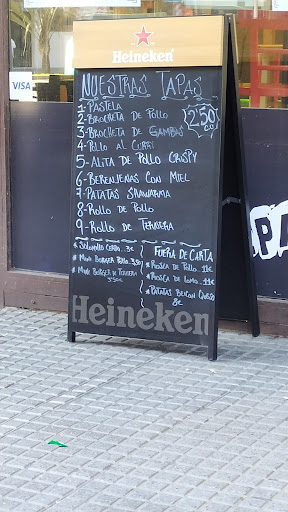 Heineken
VISA
NUESTRAS TAPAS
1-PASTELA
2-BROCHETA DE POLLO
2'50€
C.U
3-BROCHETA DE GAMBAS
4-POLLO AL CURRY
5-ALITA DE POLLO CRISPY
6-BERENJENAS CON MIEL
7-PATATAS SHAWARMA
8-ROLLO DE POLLO
9-ROLLO DE TERNERA
* SOLOMILLO CERDO...3€
* MINI BURGER POLLO.3,50
* MINI BURGER DE TERNERA
3,50€
FUERA DE CARTA
* ROSCA DE POLLO..11€
* ROSCA DE LOMO..11€
* PATATAS BEICON QUESO
8€
Heineken
PA